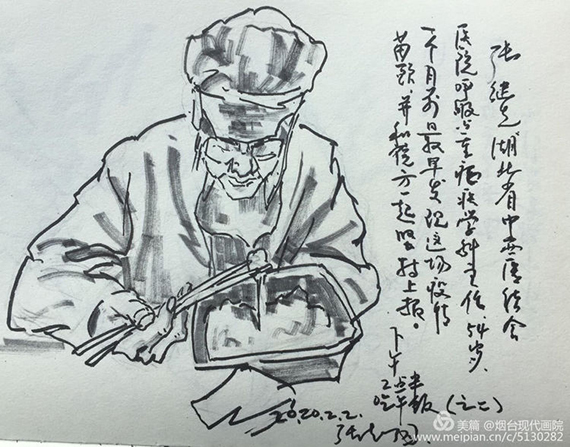 张继先湖北省中西医结合
医院呼吸与重症医学科主任、54岁、
一个月前最早发现这场疫情
苗头、并和院方一起坚持上报。
下午
2点半
吃午饭(之二)
2020.2.2.
美篇 @烟台现代画院
www.meipian.cn/c/5130282